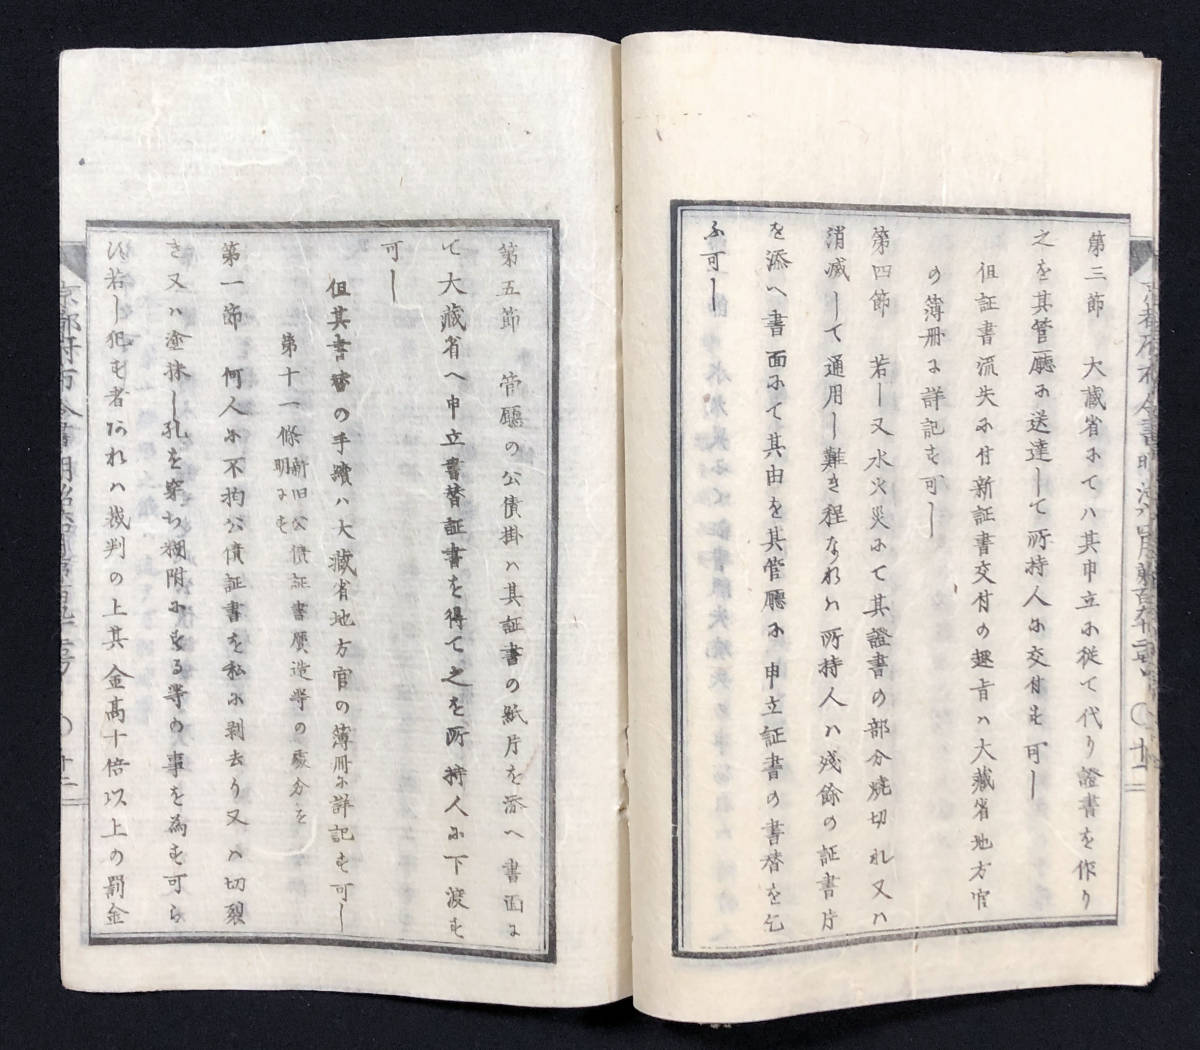 第三節　大蔵省にてハ其申立に従て代り證書を作り
之を其管廳に送達して所持人に交付す可し
但証書流失に付新証書交付の趣旨ハ大蔵省地方官
の簿冊に詳記す可し
第四節　若し又水火災にて其證書の部分焼切れ又ハ
消滅して通用し難き程なれハ所持人ハ残餘の証書片
を添へ書面にて其由を其管廳に申立証書の書替を乞
ふ可し
第五節　管廳の公債掛ハ其証書の紙片を添へ書面に
て大藏省へ申立書替証書を得て之を所持人に下渡す
可し
但其書替の手續ハ大藏省地方官の薄冊に詳記す可し
第十一條　新旧公債証書贋造等の處分を
明にす
第一節　何人に不拘公債証書を私に剥去り又ハ切裂
き又ハ塗抹し孔を穿ち糊附にする等の事を為す可ら
す若し犯す者あれハ裁判の上其金高十倍以上の罰金
京都府布令書明治